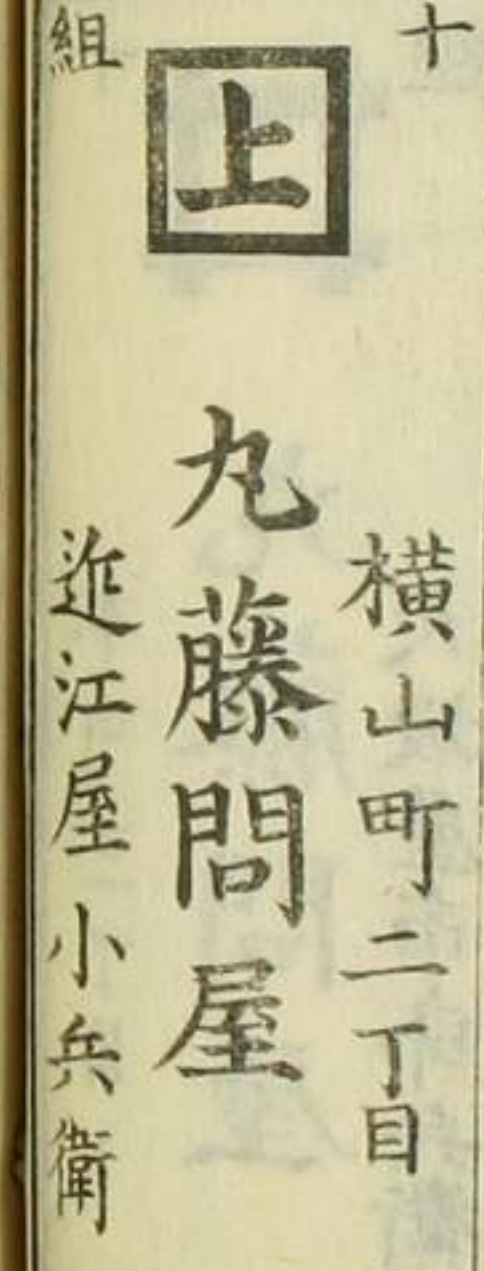 十
組
上
横山町二丁目
丸藤問屋
近江屋小兵衛